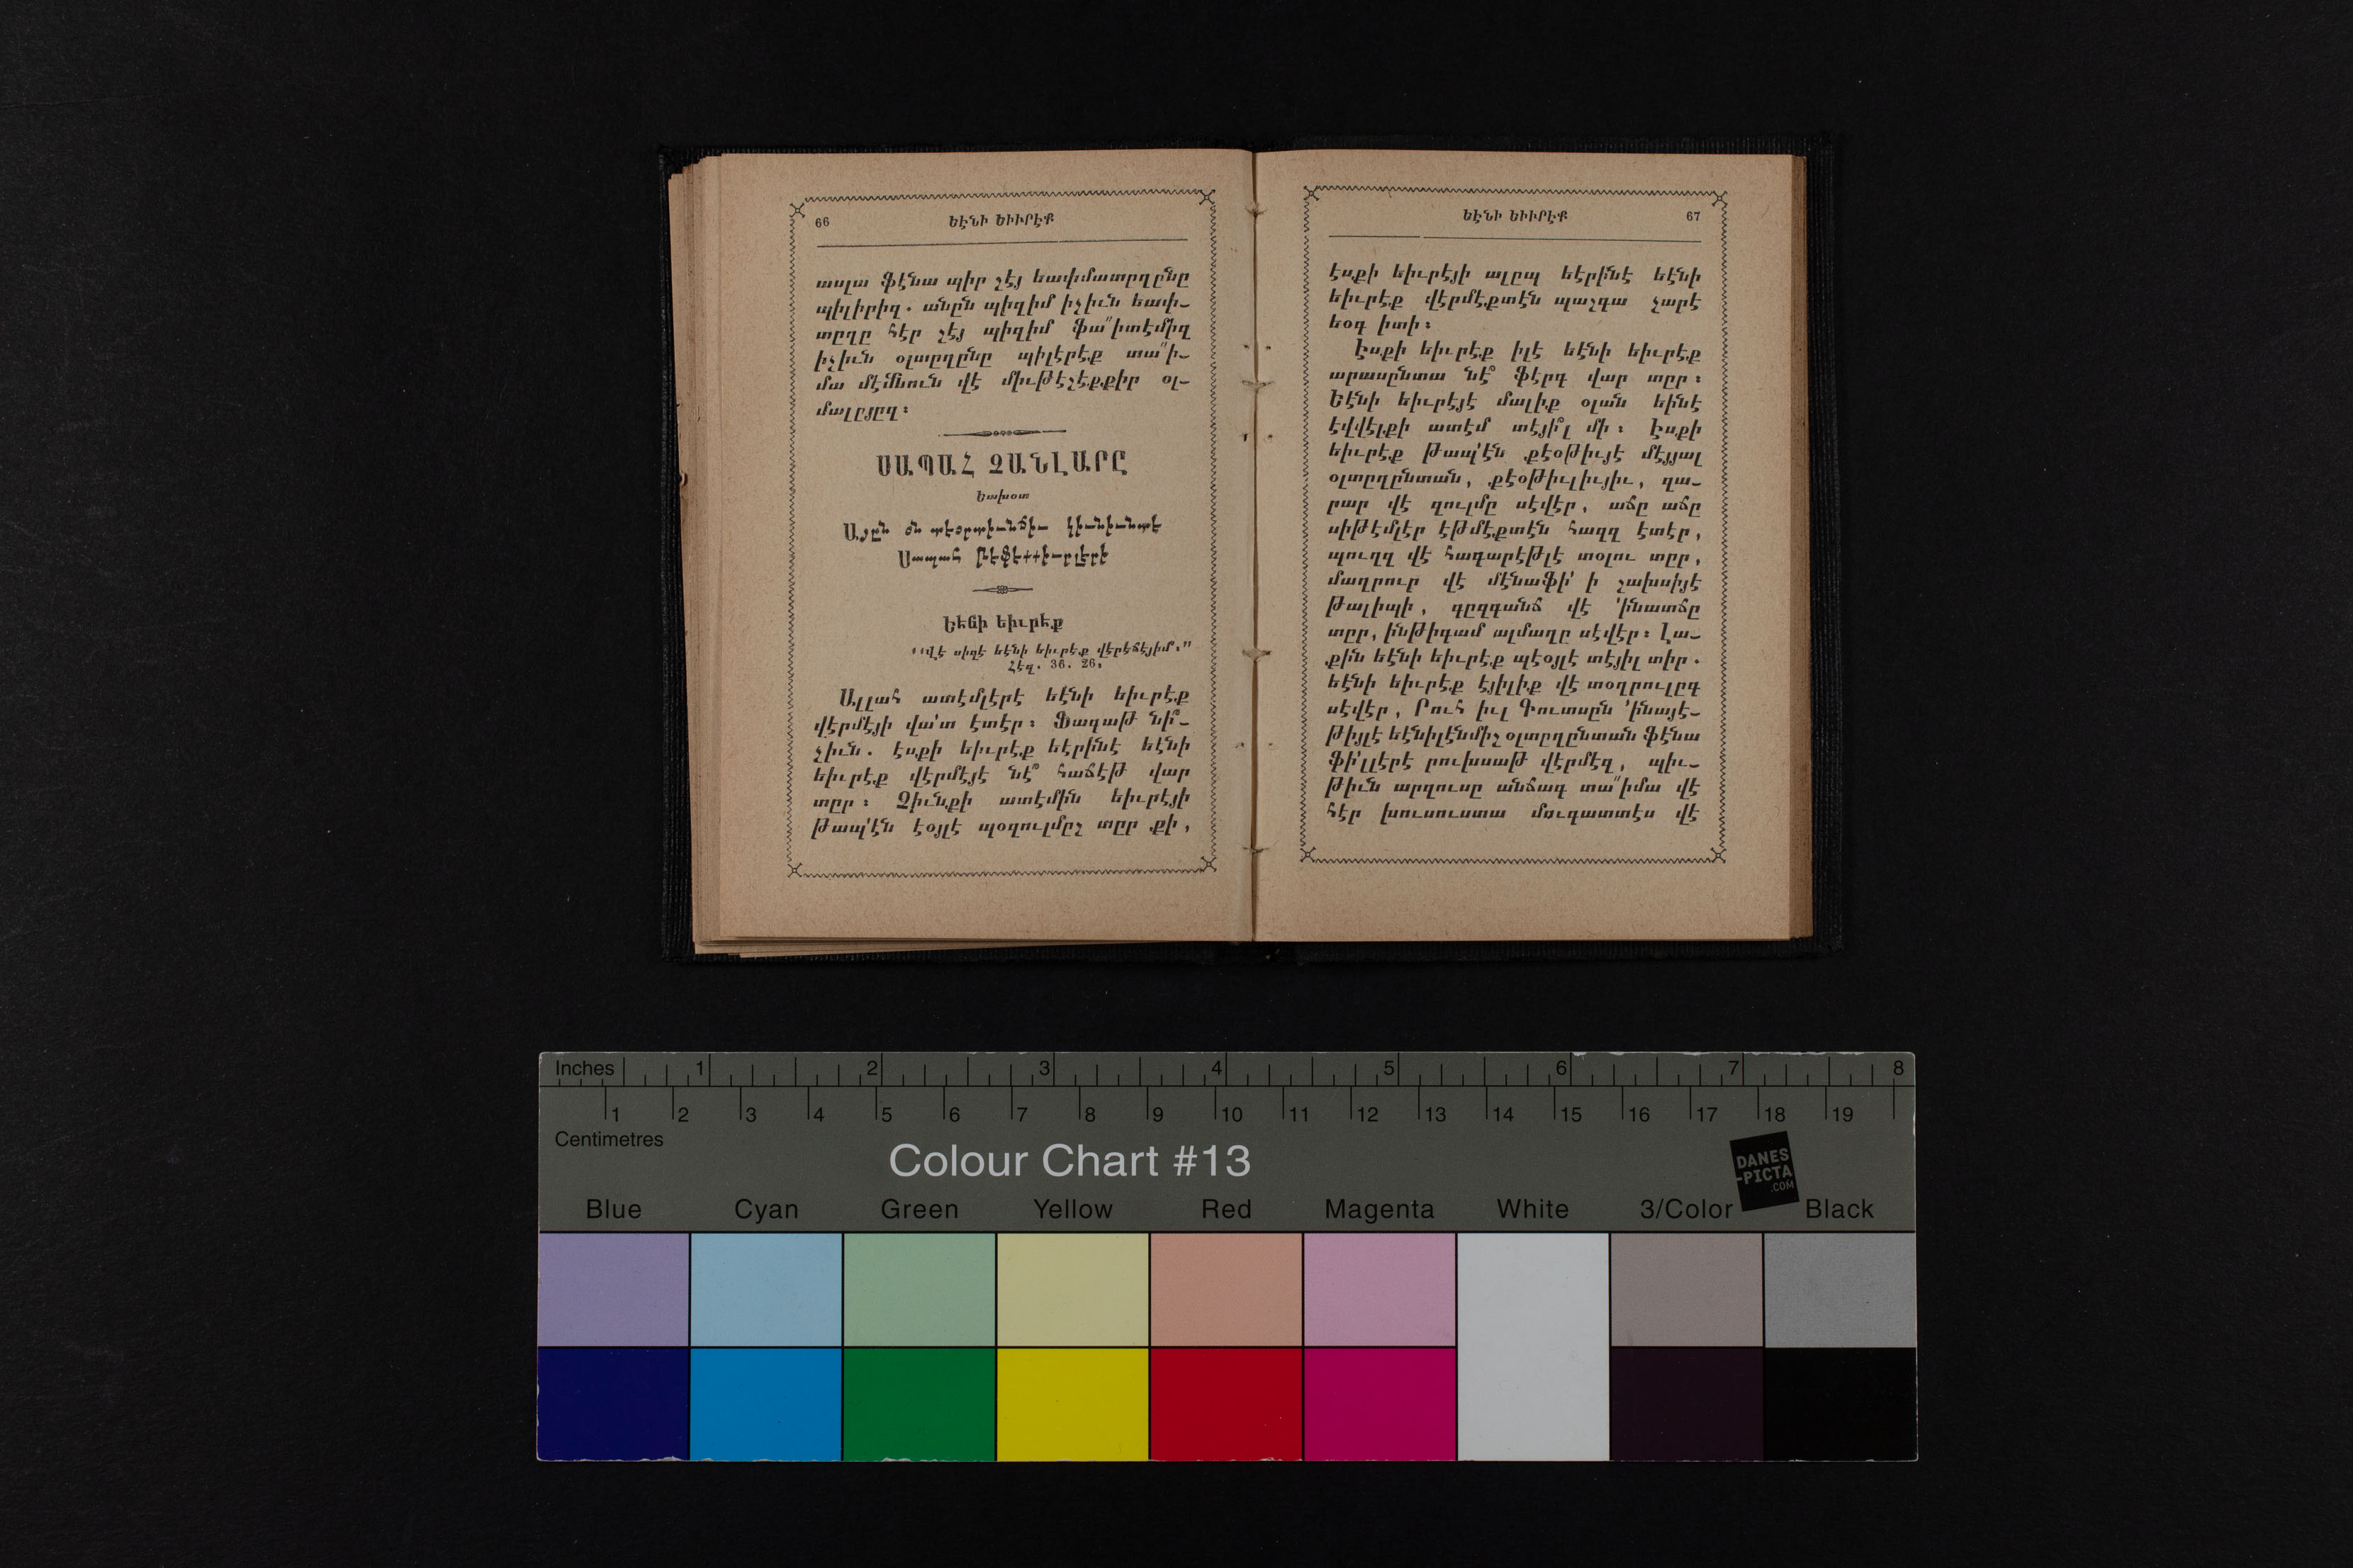 66 ԵԷՆԻ ԵԻՒՐԷՔ
ասլա ֆէնա պիր շէյ եափմատըղընը
պիլիրիզ. անըն պիզիմ իչիւն եափ-
տըղը հէր շէյ պիզիմ ֆա՛՛իտէմիզ
իչիւն օլտըղընը պիլէրէք տա՛՛ի-
մա մէմնուն վէ միւթէշէքքիր օլ-
մալըյըզ։
ՍԱՊԱՀ ՋԱՆԼԱՐԸ
Եախօտ
Այըն օն տէօրտիւնճիւ կիւնիւնտէ
Սապահ Թէֆէքքիւրլէրի
Եէնի եիւրէք
«Վէ սիզէ եէնի եիւրէք վէրէճէյիմ։»
Հէզ. 36. 26։
Ալլահ ատէմլէրէ եէնի եիւրէք
վէրմէյի վա՛տ էտէր։ Ֆագաթ նի՞-
չիւն. էսքի եիւրէք եէրինէ եէնի
եիւրէք վէրմէյէ նէ՞ հաճէթ վար
տըր։ Չիւնքի ատէմին եիւրէյի
թապ՛էն էօյլէ պօզուլմըշ տըր քի,
ԵԷՆԻ ԵԻՒՐԷՔ 67
էսքի եիւրէյի ալըպ եէրինէ եէնի
եիւրէք վէրմէքտէն պաշգա չարէ
եօգ իտի։
Էսքի եիւրէք իլէ եէնի եիւրէք
արասընտա նէ՞ ֆէրգ վար տըր։
Եէնի եիւրէյէ մալիք օլան եինէ
էվվէլքի ատէմ տէյի՞լ մի։ Էսքի
եիւրէք թապ՛էն քէօթիւյէ մէյյալ
օլտըղընտան, քէօթիւլիւյիւ, զա-
րար վէ զուլմը սէվէր, աճը աճը
սիթէմլէր էթմէքտէն հազզ էտէր,
պուղզ վէ հագարէթլէ տօլու տըր,
մաղրուր վէ մէնաֆի՛ ի շախսիյէ
թալիպի, գըզգանճ վէ ՛ինատճը
տըր, ինթիգամ ալմաղը սէվէր։ Լա-
քին եէնի եիւրէք պէօյլէ տէյիլ տիր.
եէնի եիւրէք էյիլիք վէ տօղրուլըգ
սէվէր, Րուհ իւլ Գուտսըն ՛ինայէ-
թիյլէ եէնիլէնմիշ օլտըղընտան ֆէնա
ֆի՛լլէրէ րուխսաթ վէրմէզ, պիւ-
թիւն արզուսը անճագ տա՛՛իմա վէ
հէր խուսուստա մուգատտէս վէ
Inches 1 2 3 4 5 6 7 8
1 2 3 4 5 6 7 8 9 10 11 12 13 14 15 16 17 18 19
Centimetres
Colour Chart #13
DANES
-PICTA
.COM
Blue Cyan Green Yellow Red Magenta White 3/Color Black